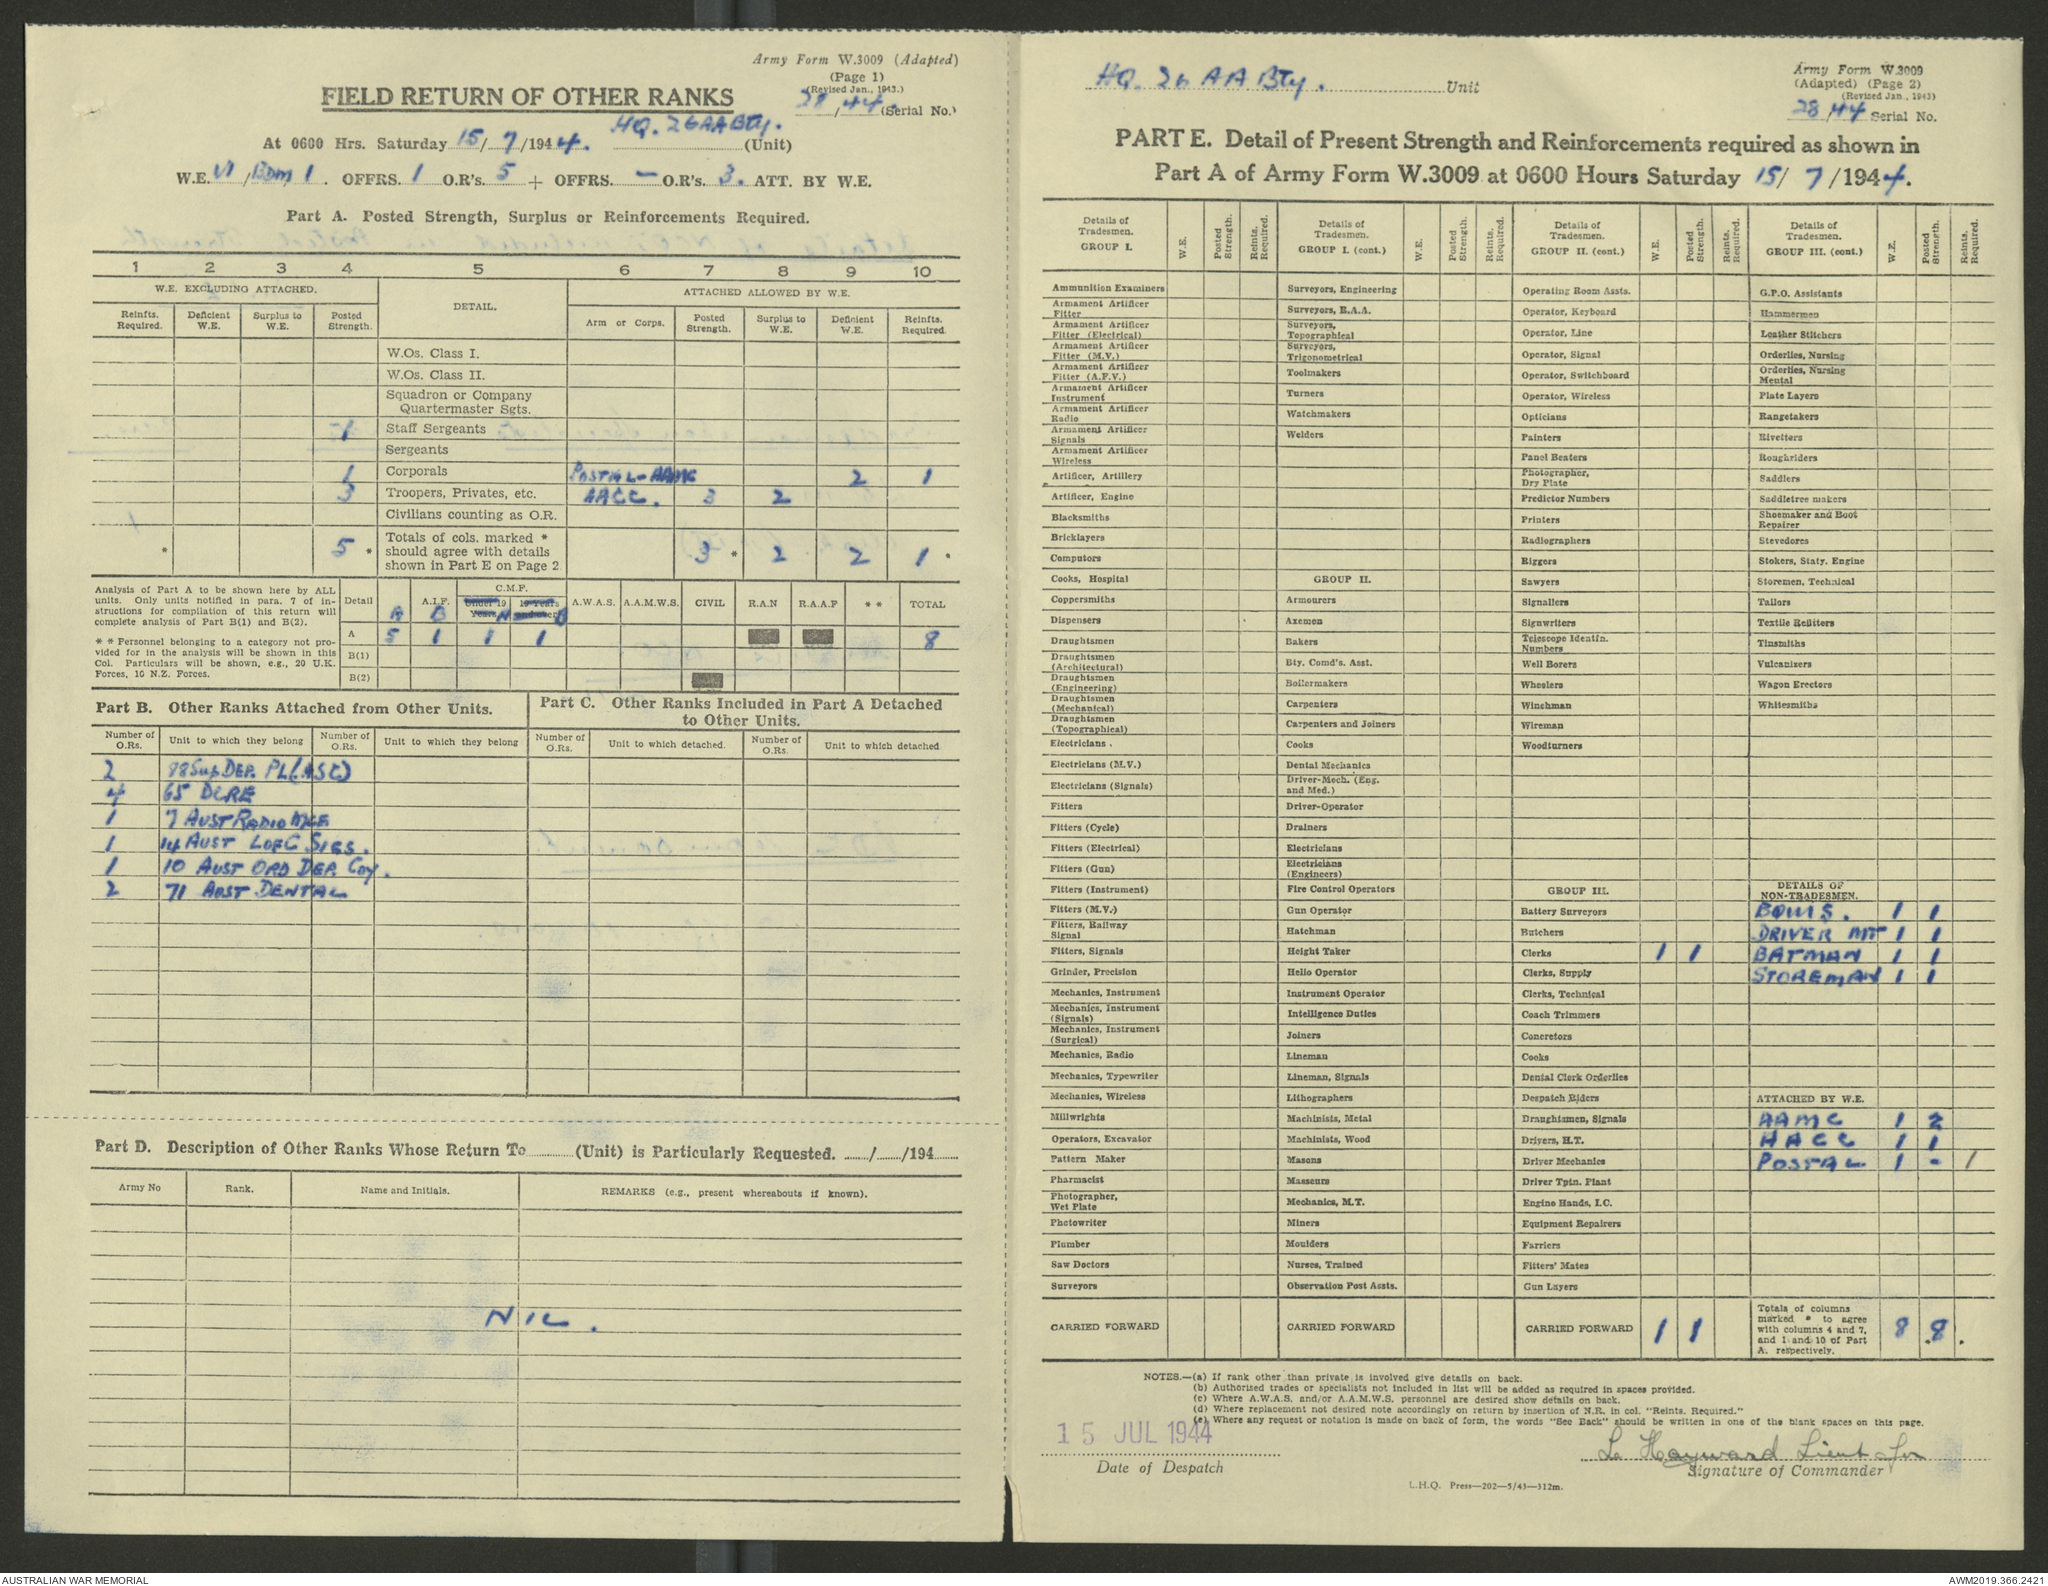 Army Form W.3009 (Adapted)
(Page 1)
(Revised Jan., 1943.)
28/44 (Serial No.)
FIELD RETURN OF OTHER RANKS
At 0600 Hrs. Saturday 15/7/1944. HQ. 26 AA Bty. (Unit)
W.E. VI/BDM/1. OFFRS. 1 O.R's. 5 + OFFRS. — O.R's. 3. ATT. BY W.E.
Part A. Posted Strength, Surplus or Reinforcements Required.
1 2 3 4 5 6 7 8 9 10
W.E. EXCLUDING ATTACHED. DETAIL. ATTACHED ALLOWED BY W.E.
Reinfts. Required. Deficient W.E. Surplus to W.E. Posted Strength. Arm or Corps. Posted Strength. Surplus to W.E. Deficient W.E. Reinfts. Required.
W.Os. Class I.
W.Os. Class II.
Squadron or Company
Quartermaster Sgts.
1 Staff Sergeants
Sergeants
1 Corporals POSTAL-AAMC 2 1
3 Troopers, Privates, etc. AACC. 3 2
Civilians counting as O.R.
* 5 * Totals of cols. marked * should agree with details shown in Part E on Page 2 3 * 2 2 1 *
Analysis of Part A to be shown here by ALL
units. Only units notified in para. 7 of in-
structions for compilation of this return will
complete analysis of Part B(1) and B(2).
* * Personnel belonging to a category not pro-
vided for in the analysis will be shown in this
Col. Particulars will be shown, e.g., 20 U.K.
Forces, 10 N.Z. Forces.
Detail A.I.F. C.M.F. Under 19 Years 19 Years and over A.W.A.S. A.A.M.W.S. CIVIL R.A.N R.A.A.F * * TOTAL
A B N B
A 5 1 1 1 8
B(1)
B(2)
Part B. Other Ranks Attached from Other Units.
Number of O.Rs. Unit to which they belong Number of O.Rs. Unit to which they belong
2 98 Sup DEP. PL (ASC)
4 65 DCRE
1 7 AUST RADIO MCE
1 14 AUST LOFC SIGS.
1 10 AUST ORD DEP. COY.
2 71 AUST DENTAL
Part C. Other Ranks Included in Part A Detached
to Other Units.
Number of O.Rs. Unit to which detached. Number of O.Rs. Unit to which detached
Part D. Description of Other Ranks Whose Return To ........ (Unit) is Particularly Requested. ....../....../194......
Army No Rank. Name and Initials. REMARKS (e.g., present whereabouts if known).
NIL.
HQ. 26 AA Bty. Unit
Army Form W.3009
(Adapted) (Page 2)
(Revised Jan., 1943)
28/44 Serial No.
PART E. Detail of Present Strength and Reinforcements required as shown in
Part A of Army Form W.3009 at 0600 Hours Saturday 15/7/1944.
Details of Tradesmen. GROUP I. W.E. Posted Strength. Reints. Required.
Ammunition Examiners
Armament Artificer Fitter
Armament Artificer Fitter (Electrical)
Armament Artificer Fitter (M.V.)
Armament Artificer Fitter (A.F.V.)
Armament Artificer Instrument
Armament Artificer Radio
Armament Artificer Signals
Armament Artificer Wireless
Artificer, Artillery
Artificer, Engine
Blacksmiths
Bricklayers
Computors
Cooks, Hospital
Coppersmiths
Dispensers
Draughtsmen
Draughtsmen (Architectural)
Draughtsmen (Engineering)
Draughtsmen (Mechanical)
Draughtsmen (Topographical)
Electricians .
Electricians (M.V.)
Electricians (Signals)
Fitters
Fitters (Cycle)
Fitters (Electrical)
Fitters (Gun)
Fitters (Instrument)
Fitters (M.V.)
Fitters, Railway Signal
Fitters, Signals
Grinder, Precision
Mechanics, Instrument
Mechanics, Instrument (Signals)
Mechanics, Instrument (Surgical)
Mechanics, Radio
Mechanics, Typewriter
Mechanics, Wireless
Millwrights
Operators, Excavator
Pattern Maker
Pharmacist
Photographer, Wet Plate
Photowriter
Plumber
Saw Doctors
Surveyors
CARRIED FORWARD
Details of Tradesmen. GROUP I. (cont.) W.E. Posted Strength. Reints. Required.
Surveyors, Engineering
Surveyors, R.A.A.
Surveyors, Topographical
Surveyors, Trigonometrical
Toolmakers
Turners
Watchmakers
Welders
GROUP II.
Armourers
Axemen
Bakers
Bty. Comd's. Asst.
Boilermakers
Carpenters
Carpenters and Joiners
Cooks
Dental Mechanics
Driver-Mech. (Eng. and Med.)
Driver-Operator
Drainers
Electricians
Electricians (Engineers)
Fire Control Operators
Gun Operator
Hatchman
Height Taker
Helio Operator
Instrument Operator
Intelligence Duties
Joiners
Lineman
Lineman, Signals
Lithographers
Machinists, Metal
Machinists, Wood
Masons
Masseurs
Mechanics, M.T.
Miners
Moulders
Nurses, Trained
Observation Post Assts.
CARRIED FORWARD
Details of Tradesmen. GROUP II. (cont.) W.E. Posted Strength. Reints. Required.
Operating Room Assts.
Operator, Keyboard
Operator, Line
Operator, Signal
Operator, Switchboard
Operator, Wireless
Opticians
Painters
Panel Beaters
Photographer, Dry Plate
Predictor Numbers
Printers
Radiographers
Riggers
Sawyers
Signallers
Signwriters
Telescope Identfn. Numbers
Well Borers
Wheelers
Winchman
Wireman
Woodturners
GROUP III.
Battery Surveyors
Butchers
Clerks 1 1
Clerks, Supply
Clerks, Technical
Coach Trimmers
Concretors
Cooks
Dental Clerk Orderlies
Despatch Riders
Draughtsmen, Signals
Drivers, H.T.
Driver Mechanics
Driver Tptn. Plant
Engine Hands, I.C.
Equipment Repairers
Farriers
Fitters' Mates
Gun Layers
CARRIED FORWARD 1 1
Details of Tradesmen. GROUP III. (cont.) W.E. Posted Strength. Reints. Required.
G.P.O. Assistants
Hammermen
Leather Stitchers
Orderlies, Nursing
Orderlies, Nursing Mental
Plate Layers
Rangetakers
Rivetters
Roughriders
Saddlers
Saddletree makers
Shoemaker and Boot Repairer
Stevedores
Stokers, Staty. Engine
Storemen, Technical
Tailors
Textile Refitters
Tinsmiths
Vulcanizers
Wagon Erectors
Whitesmiths
DETAILS OF NON-TRADESMEN.
BQMS. 1 1
DRIVER MT 1 1
BATMAN 1 1
STOREMAN 1 1
ATTACHED BY W.E.
AAMC 1 2
AACC 1 1
POSTAL 1 - 1
Totals of columns marked * to agree with columns 4 and 7, and 1 and 10 of Part A. respectively. 8 8.
NOTES.—(a) If rank other than private is involved give details on back.
(b) Authorised trades or specialists not included in list will be added as required in spaces provided.
(c) Where A.W.A.S. and/or A.A.M.W.S. personnel are desired show details on back.
(d) Where replacement not desired note accordingly on return by insertion of N.R. in col. "Reints. Required."
(e) Where any request or notation is made on back of form, the words "See Back" should be written in one of the blank spaces on this page.
15 JUL 1944
Date of Despatch
Hayward Lieut for
Signature of Commander
L.H.Q. Press—202—5/43—312m.
AUSTRALIAN WAR MEMORIAL
AWM2019.366.2421